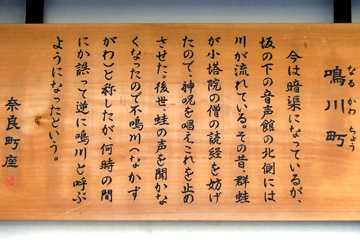 鳴川町
なるかわちょう
今は暗渠になっているが、
坂の下の音声館の北側には
川が流れている。その昔、群蛙
が小塔院の僧の読経を妨げ
たので、神呪を唱えこれを止め
させた。後世、蛙の声を聞かな
くなったので不鳴川(なかず
がわ)と称したが、何時の間
にか誤って逆に鳴川と呼ぶ
ようになったという。
奈良町座